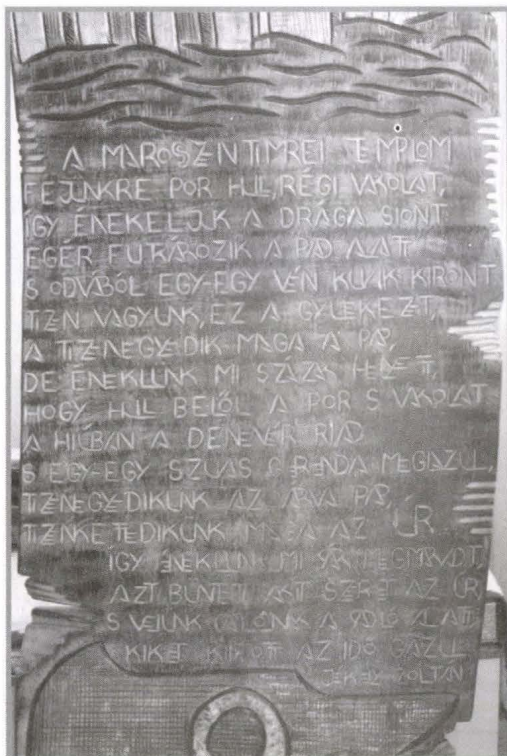 A MAROSZENTIMREI TEMPLOM
FEJÜNKRE POR HULL, RÉGI VAKOLAT,
ÍGY ÉNEKELJÜK A DRÁGA SIONT;
EGÉR FUTKÁROZIK A PAD ALATT
S ODVÁBÓL EGY-EGY VÉN KUVIK KIRONT
TIZEN VAGYUNK, EZ A GYÜLEKEZET,
A TIZENEGYEDIK MAGA A PAP,
DE ÉNEKLÜNK MI SZÁZAK HELYETT,
HOGY HULL BELŐL A POR S VAKOLAT
A HIÚBAN A DENEVÉR RIAD
S EGY-EGY SZUVAS GERENDA MEGAZUL,
TIZENEGYEDIKÜNK AZ ÁRVA PAP,
TIZENKETTEDIKÜNK MAGA AZ ÚR.
ÍGY ÉNEKLÜNK MI
AZT BÜNTETI, AKIT SZERET AZ ÚR
S VELÜNK A PADLÓ ALATT
KIKET KIDOTT AZ IDŐ GAZUL
JÉKELY ZOLTÁN